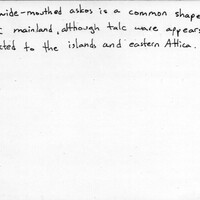 wide-mouthed askos is a common shape
mainland, although talc ware appears
cted to the islands and eastern Attica.